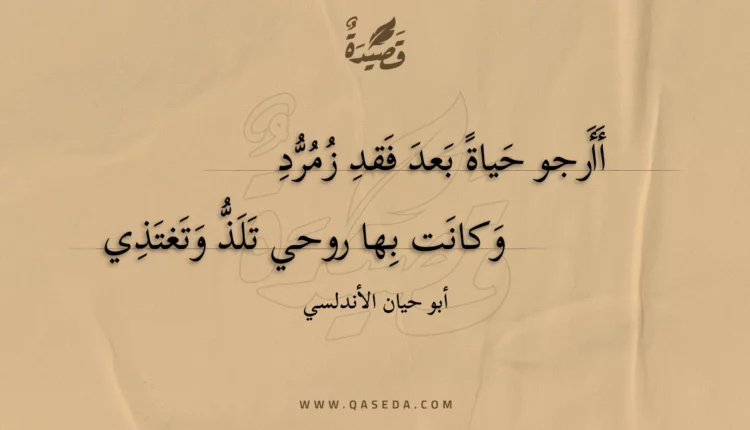 قَصِيدَةٌ
أَأَرجو حَياةً بَعدَ فَقدِ زُمُرُّدِ
وَكانَت بِها روحي تَلَذُّ وَتَغتَذِي
أبو حيان الأندلسي
WWW.QASEDA.COM